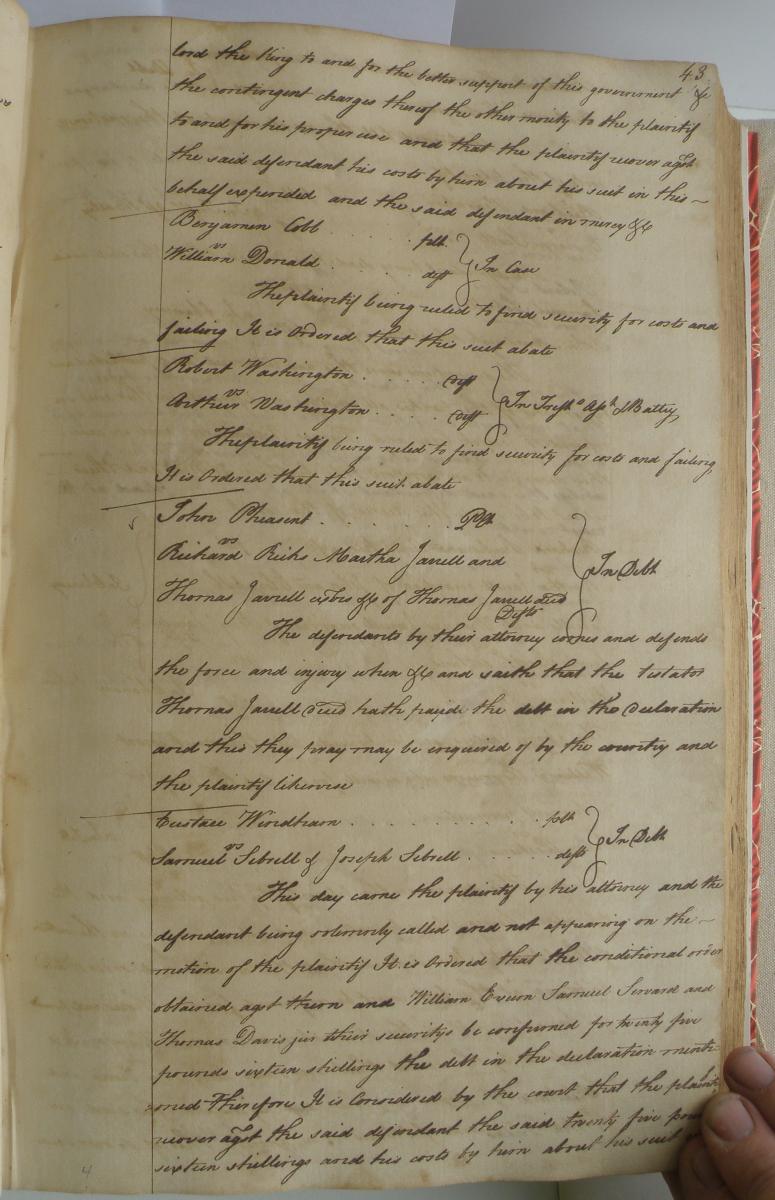 43
lord the King to and for the better support of this government &c
the contingent charges thereof the other moiety to the plaintif
to and for his proper use and that the plaintif recover agst
the said defendant his costs by him about his suit in this
behalf expended and the said defendant in mercy &c
Benjamen Cobb . . . . . plt
vs
William Donald . . . . . deft } In Case
The plaintif being ruled to find security for costs and
failing It is Ordered that this suit abate
Robert Washington . . . .
vs
Arthur Washington . . . . Deft } In Tresps Asst & Battry
The plaintif being ruled to find security for costs and failing
It is Ordered that this suit abate
John Pleasent . . . . . . . Plt
vs
Richard Ricks Martha Jarrell and } In Debt
Thomas Jarrell exors &c of Thomas Jarrell decd
Defts
The defendants by their attorney comes and defends
the force and injury when &c and saith that the testator
Thomas Jarrell decd hath payd the debt in the declaration
and this they pray may be enquired of by the country and
the plaintif likewise
Eustace Windham . . . . . . . . . . . plt
vs } In Debt
Samuel Sebrell & Joseph Sebrell . . . . . . defts
This day came the plaintif by his attorney and the
defendant being solemnly called and not appearing on the
motion of the plaintif It is Ordered that the conditional order
obtained agst them and William Samuel and
Thomas Davis jur their securitys be confirmed for twenty five
pounds sixteen shellings the debt in the declaration menti-
oned Therefore It is Considered by the court that the plaintif
recover agst the said defendant the said twenty five
sixteen shellings and his costs by him about his suit